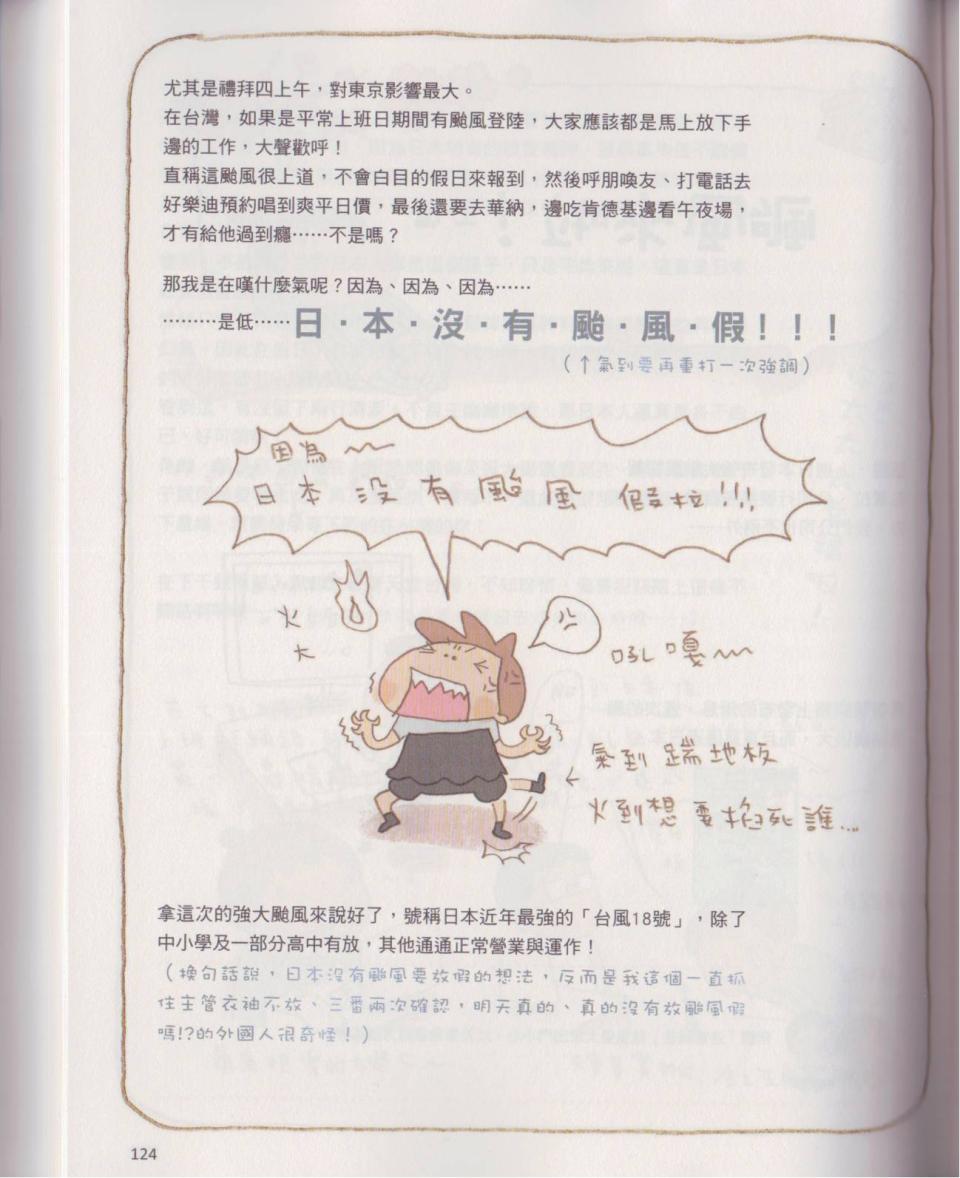 尤其是禮拜四上午，對東京影響最大。
在台灣，如果是平常上班日期間有颱風登陸，大家應該都是馬上放下手
邊的工作，大聲歡呼！
直稱這颱風很上道，不會白目的假日來報到，然後呼朋喚友、打電話去
好樂迪預約唱到爽平日價，最後還要去華納，邊吃肯德基邊看午夜場，
才有給他過到癮……不是嗎？
那我是在嘆什麼氣呢？因為、因為、因為……
………是低……日・本・沒・有・颱・風・假！！！
（↑氣到要再重打一次強調）
因為～～
日本沒有颱風假拉!!!!
火
大
吼嘎～～
氣到踹地板
火到想要掐死誰...
拿這次的強大颱風來說好了，號稱日本近年最強的「台風18號」，除了
中小學及一部分高中有放，其他通通正常營業與運作！
（換句話說，日本沒有颱風要放假的想法，反而是我這個一直抓
住主管衣袖不放、三番兩次確認，明天真的、真的沒有放颱風假
嗎!?的外國人很奇怪！）
124